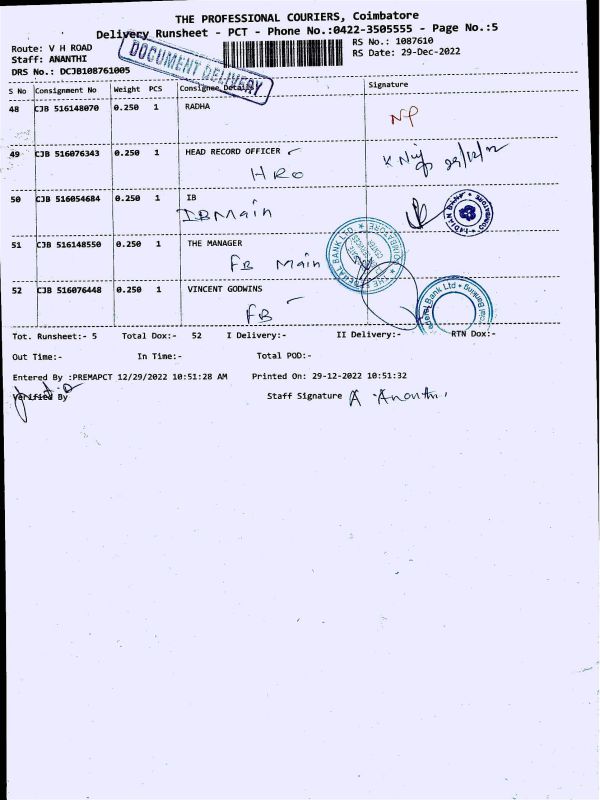 THE PROFESSIONAL COURIERS, Coimbatore
Delivery Runsheet - PCT - Phone No.:0422-3505555 - Page No.:5
Route: V H ROAD RS No.: 1087610
Staff: ANANTHI RS Date: 29-Dec-2022
DRS No.: DCJB108761005
DOCUMENT DELIVERY
S No Consignment No Weight PCS Consignee Details Signature
48 CJB 516148070 0.250 1 RADHA
49 CJB 516076343 0.250 1 HEAD RECORD OFFICER
HRO
50 CJB 516054684 0.250 1 IB
IB Main
INDIAN BANK
51 CJB 516148550 0.250 1 THE MANAGER
FB Main
52 CJB 516076448 0.250 1 VINCENT GODWINS
FB
Bank Ltd
Tot. Runsheet:- 5 Total Dox:- 52 I Delivery:- II Delivery:- RTN Dox:-
Out Time:- In Time:- Total POD:-
Entered By :PREMAPCT 12/29/2022 10:51:28 AM Printed On: 29-12-2022 10:51:32
Verified By Staff Signature A. Ananthi